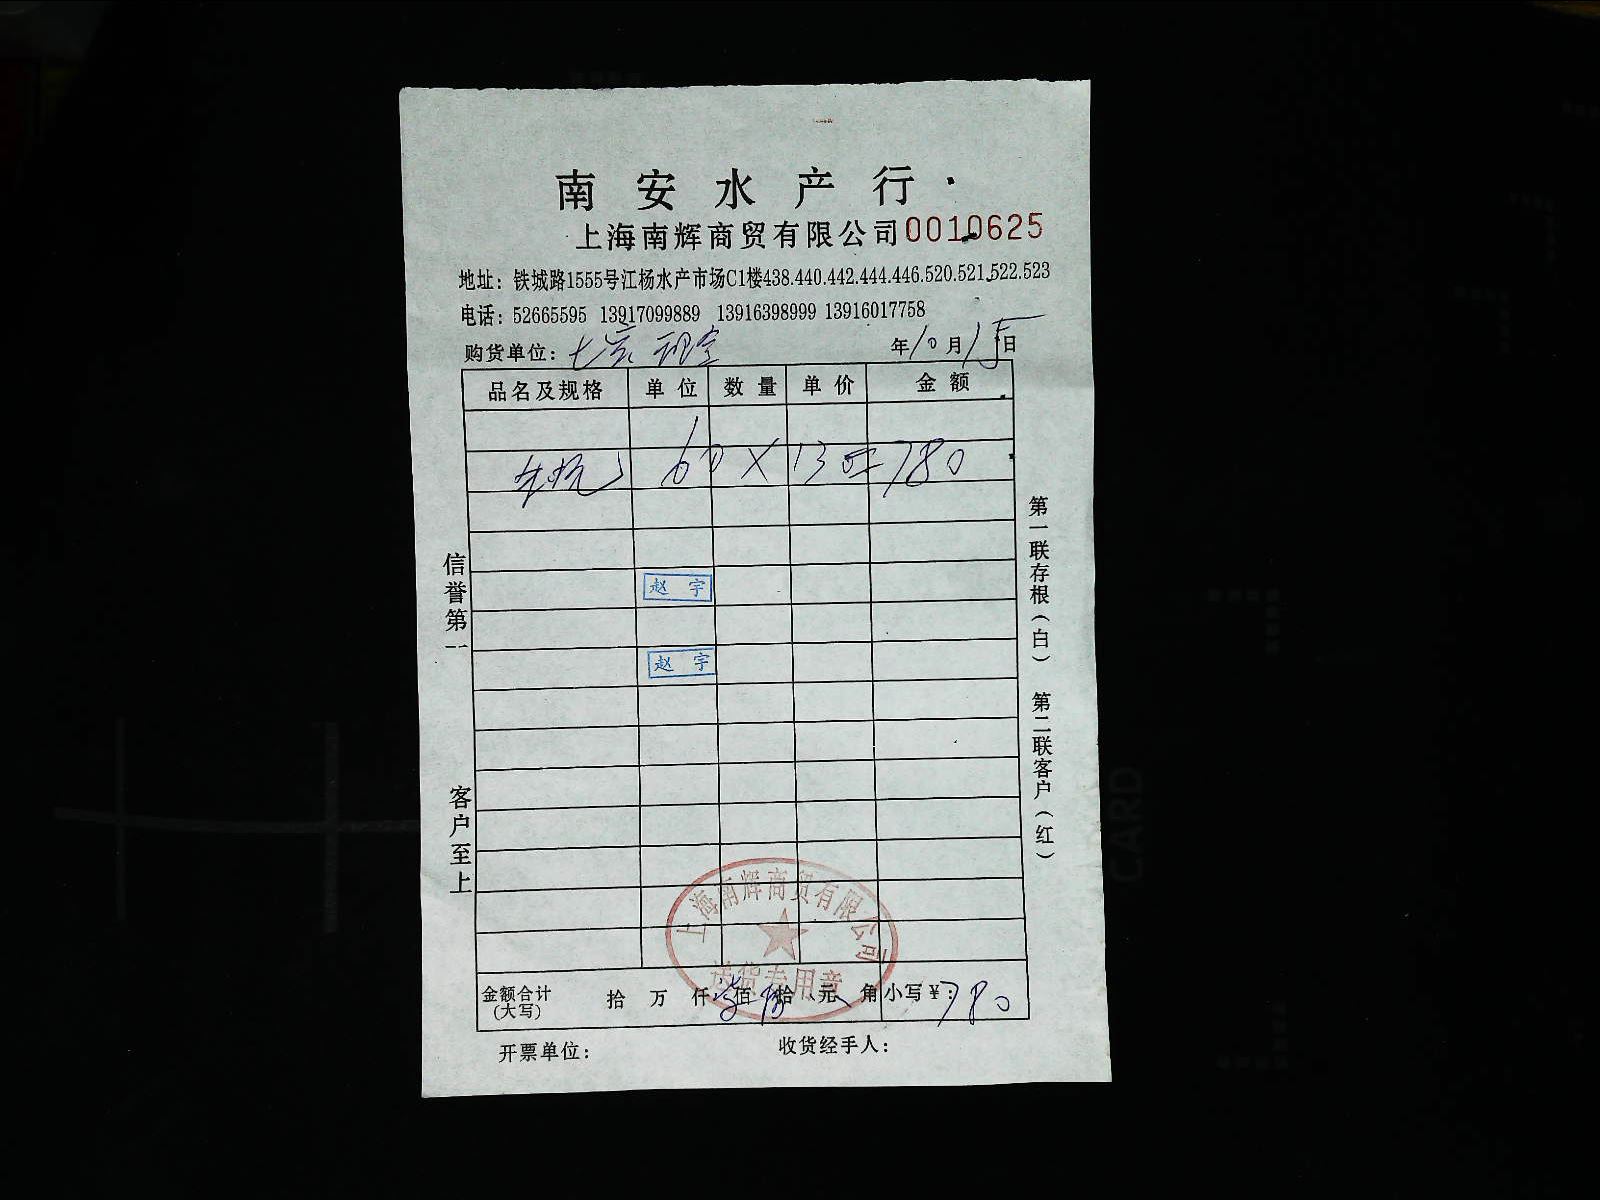 南安水产行
上海南辉商贸有限公司 0010625
地址：铁城路1555号江杨水产市场C1楼438.440.442.444.446.520.521.522.523
电话：52665595 13917099889 13916398999 13916017758
购货单位： 年10月15日
品名及规格 单位 数量 单价 金额
60 X 13 = 780
赵宇
赵宇
信誉第一
客户至上
第一联存根（白） 第二联客户（红）
上海南辉商贸有限公司
送货专用章
金额合计（大写） 拾 万 仟 柒 佰 捌 拾 元 角 小写￥：780
开票单位： 收货经手人：
CARD